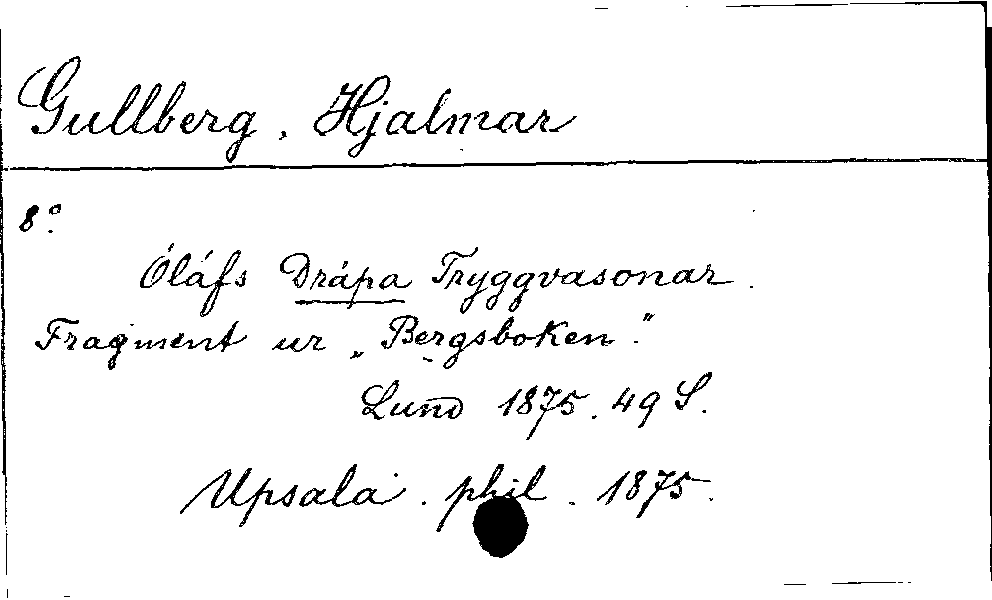 Gullberg, Hjalmar
8°.
Óláfs Drápa Tryggvasonar.
Fragment ur „Bergsboken".
Lund 1875. 49 S.
Upsala. phil. 1875.